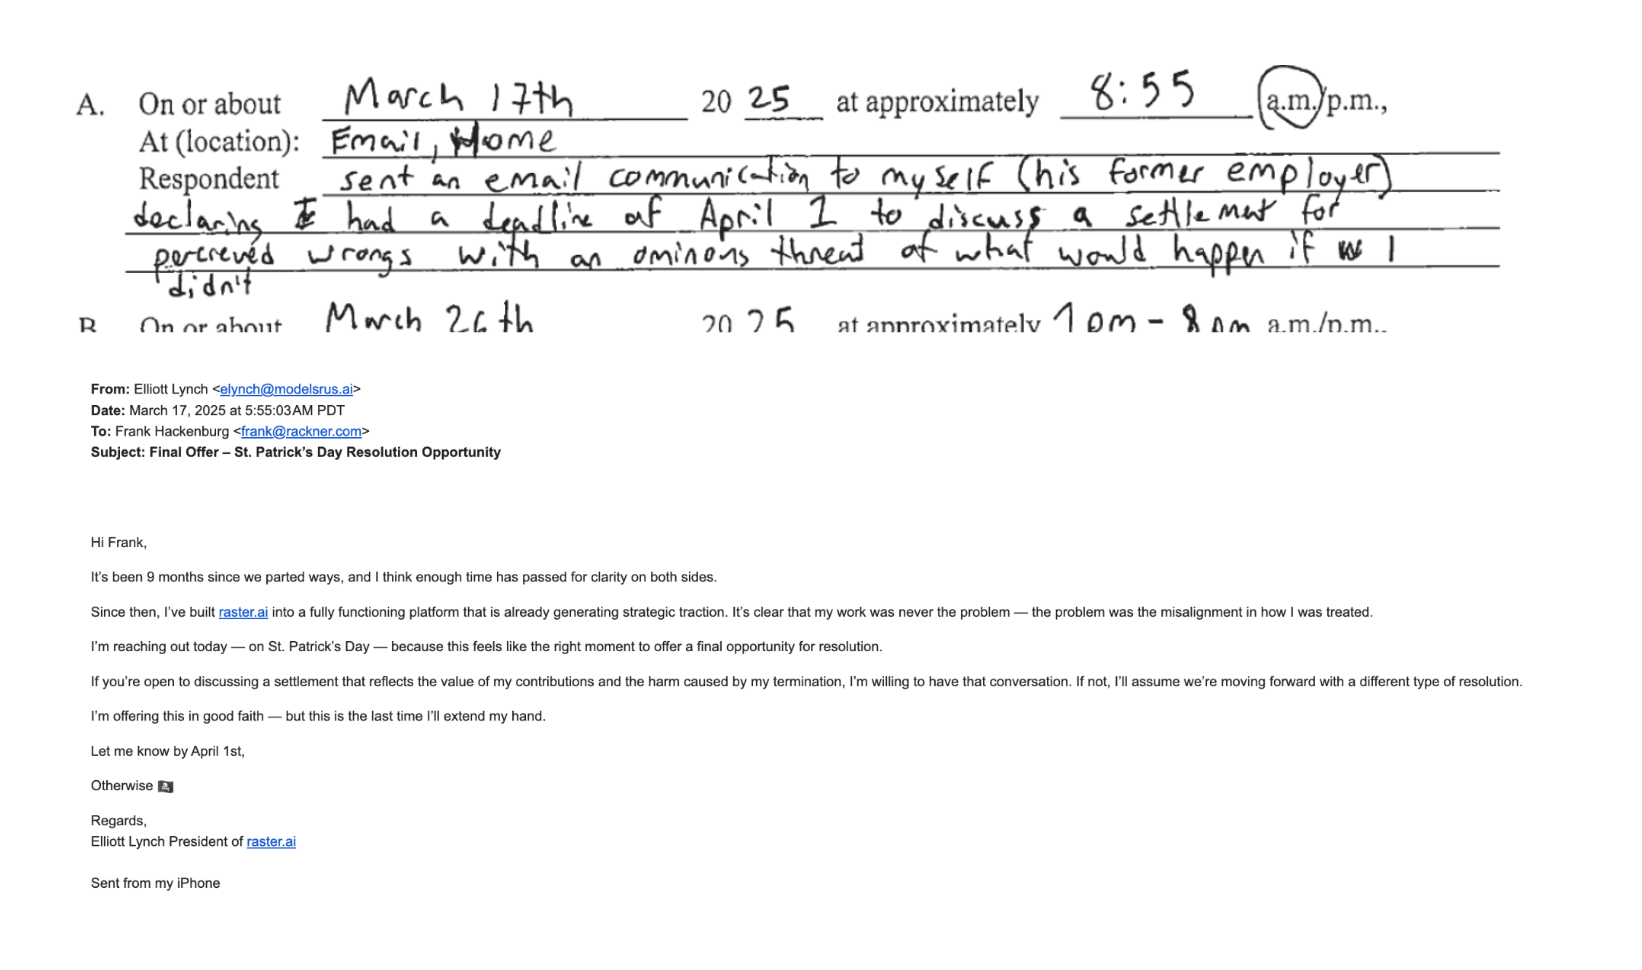 A. On or about March 17th 20 25 at approximately 8:55 a.m./p.m.,
At (location): Email, Home
Respondent sent an email communication to myself (his former employer)
declaring I had a deadline of April 1 to discuss a settlement for
percieved wrongs with an ominous threat of what would happen if I
didn't
B. On or about March 26th 20 25 at approximately 7am - 8am a.m./p.m.,
From: Elliott Lynch <elynch@modelsrus.ai>
Date: March 17, 2025 at 5:55:03 AM PDT
To: Frank Hackenburg <frank@rackner.com>
Subject: Final Offer – St. Patrick’s Day Resolution Opportunity
Hi Frank,
It’s been 9 months since we parted ways, and I think enough time has passed for clarity on both sides.
Since then, I’ve built raster.ai into a fully functioning platform that is already generating strategic traction. It’s clear that my work was never the problem — the problem was the misalignment in how I was treated.
I’m reaching out today — on St. Patrick’s Day — because this feels like the right moment to offer a final opportunity for resolution.
If you’re open to discussing a settlement that reflects the value of my contributions and the harm caused by my termination, I’m willing to have that conversation. If not, I’ll assume we’re moving forward with a different type of resolution.
I’m offering this in good faith — but this is the last time I’ll extend my hand.
Let me know by April 1st,
Otherwise 🏴‍☠️
Regards,
Elliott Lynch President of raster.ai
Sent from my iPhone